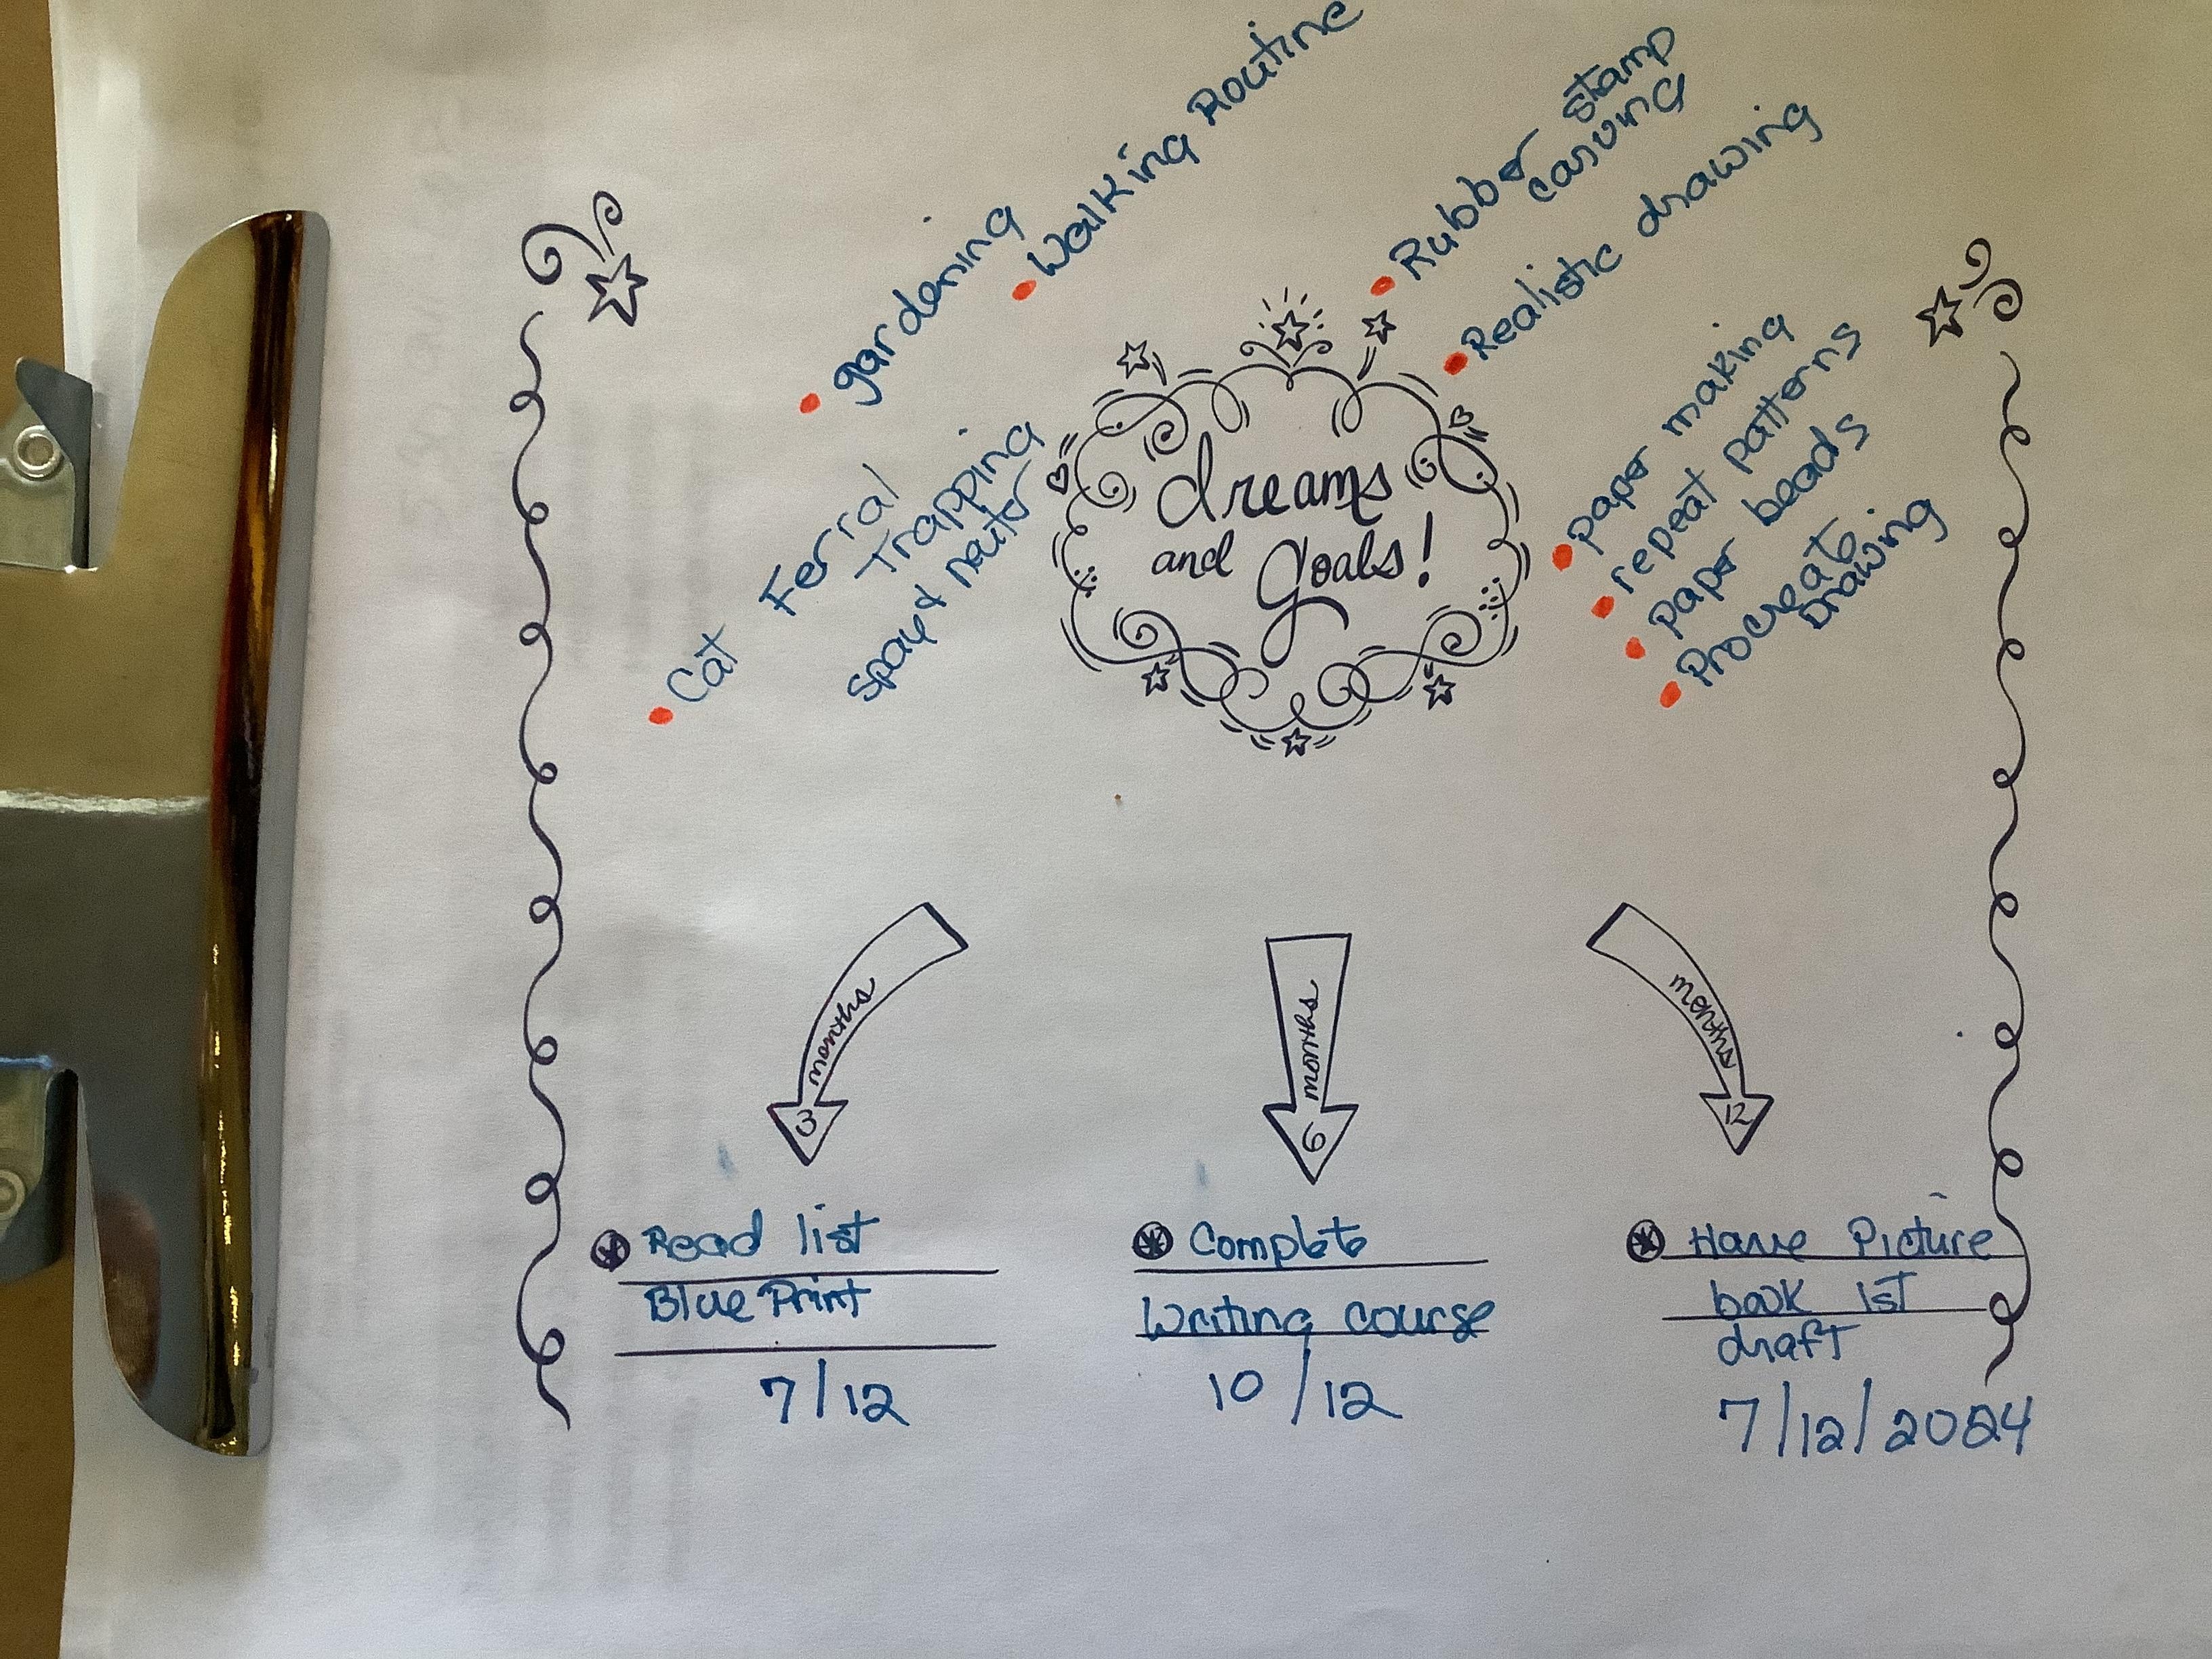 Walking Routine
gardening
Cat Ferral
Trapping
spay & neuter
Rubber stamp
carving
Realistic drawing
paper making
repeat patterns
paper beads
Procreate
Drawing
dreams
and goals!
months
3
months
6
months
12
Read list
Blue Print
7/12
Complete
Writing course
10/12
Have Picture
book 1st
draft
7/12/2024